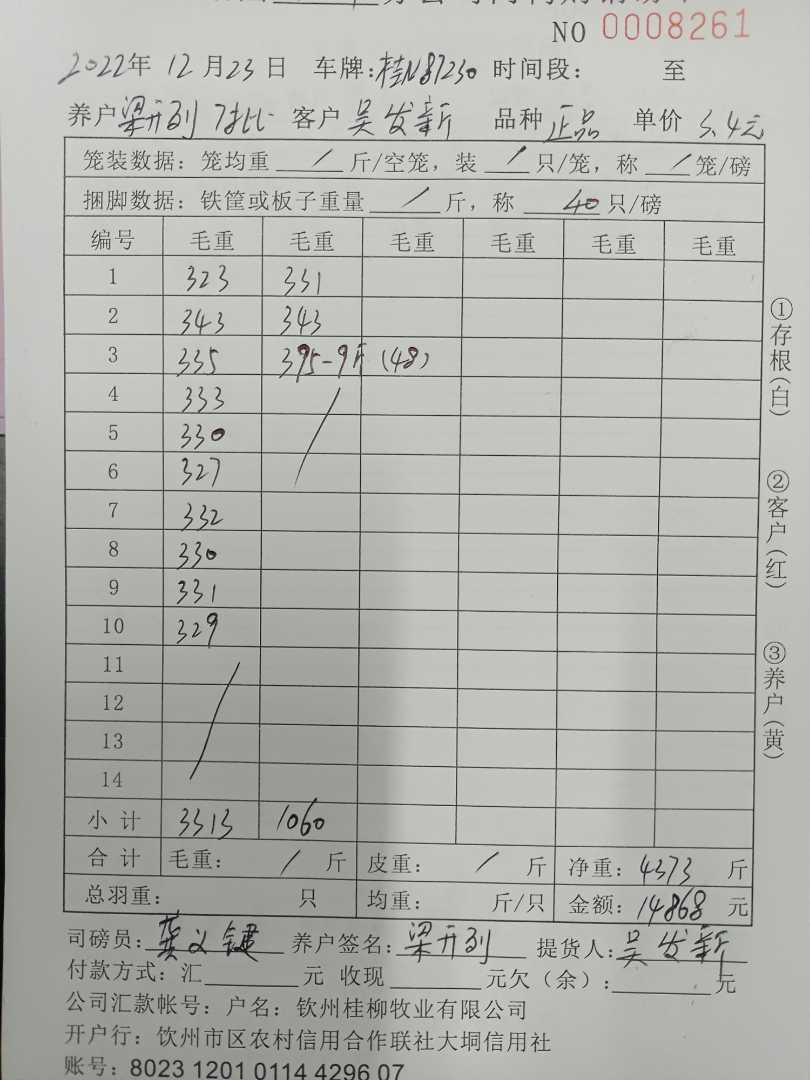 NO 0008261
2022年 12月23日 车牌:桂N87230 时间段: 至
养户 梁开列 7批 客户 吴发新 品种 正品 单价 3.4元
笼装数据: 笼均重 / 斤/空笼, 装 / 只/笼, 称 / 笼/磅
捆脚数据: 铁筐或板子重量 / 斤, 称 40 只/磅
编号 毛重 毛重 毛重 毛重 毛重 毛重
1 323 331
2 343 343
3 335 395-9斤 (48)
4 333 /
5 330
6 327
7 332
8 330
9 331
10 329
11 /
12
13
14
小计 3313 1060
合计 毛重: / 斤 皮重: / 斤 净重: 4373 斤
总羽重: 只 均重: 斤/只 金额: 14868 元
司磅员: 龚义键 养户签名: 梁开列 提货人: 吴发新
付款方式: 汇 元 收现 元欠(余): 元
公司汇款帐号: 户名: 钦州桂柳牧业有限公司
开户行: 钦州市区农村信用合作联社大垌信用社
账号: 8023 1201 0114 4296 07
①存根(白)
②客户(红)
③养户(黄)